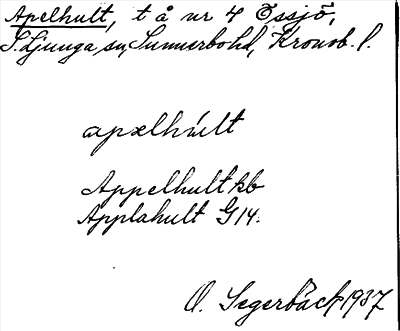 Apelhult, t å nr 4 Össjö,
S. Ljunga sn, Sunnerbohd, Kronob. l.
apælhúlt
Appelhult kb
Applahult G 14.
O. Segerbäck 1937